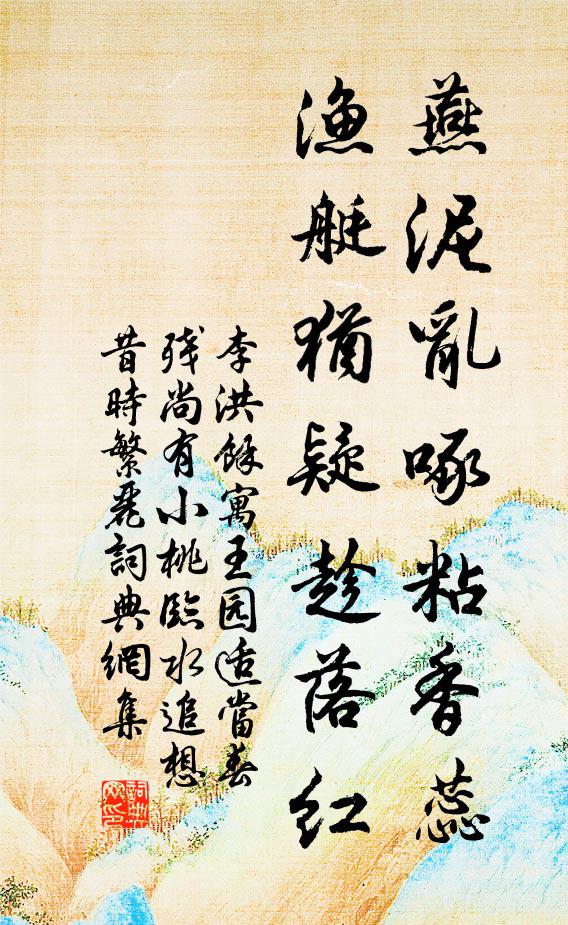 燕泥亂啄粘香蕊
漁艇猶疑趁落红
李洪餘寓王园适當春
残尚有小桃臨水追想
昔時繁麗詞典網集
詞典